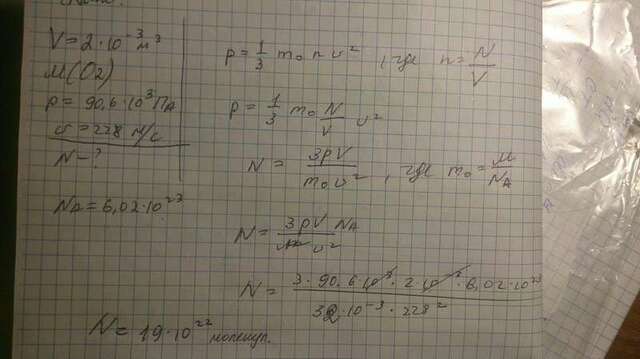 V = 2·10⁻³ м³
M(O₂)
p = 90,6·10³ Па
υ = 228 м/с
N - ?
N_A = 6,02·10²³
p = 1/3 m₀ n υ² , где n = N/V
p = 1/3 m₀ N/V υ²
N = 3pV/m₀υ² , где m₀ = M/N_A
N = 3pV N_A/M υ²
N = 3·90,6·10³·2·10⁻³·6,02·10²³/32·10⁻³·228²
N = 19·10²² молекул.